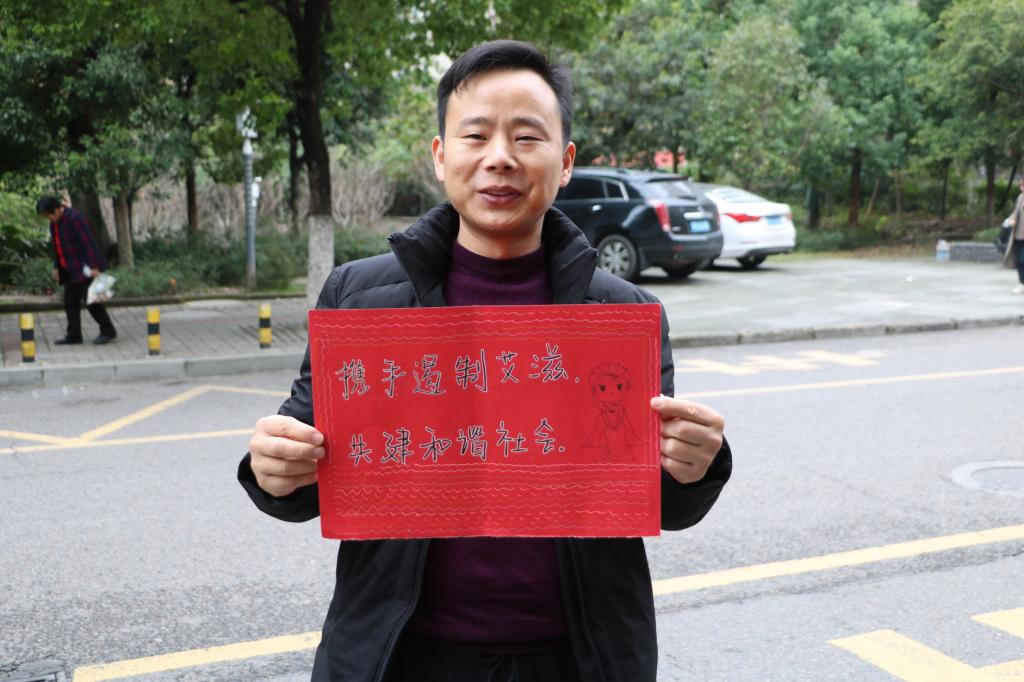 携手遏制艾滋.
共建和谐社会.